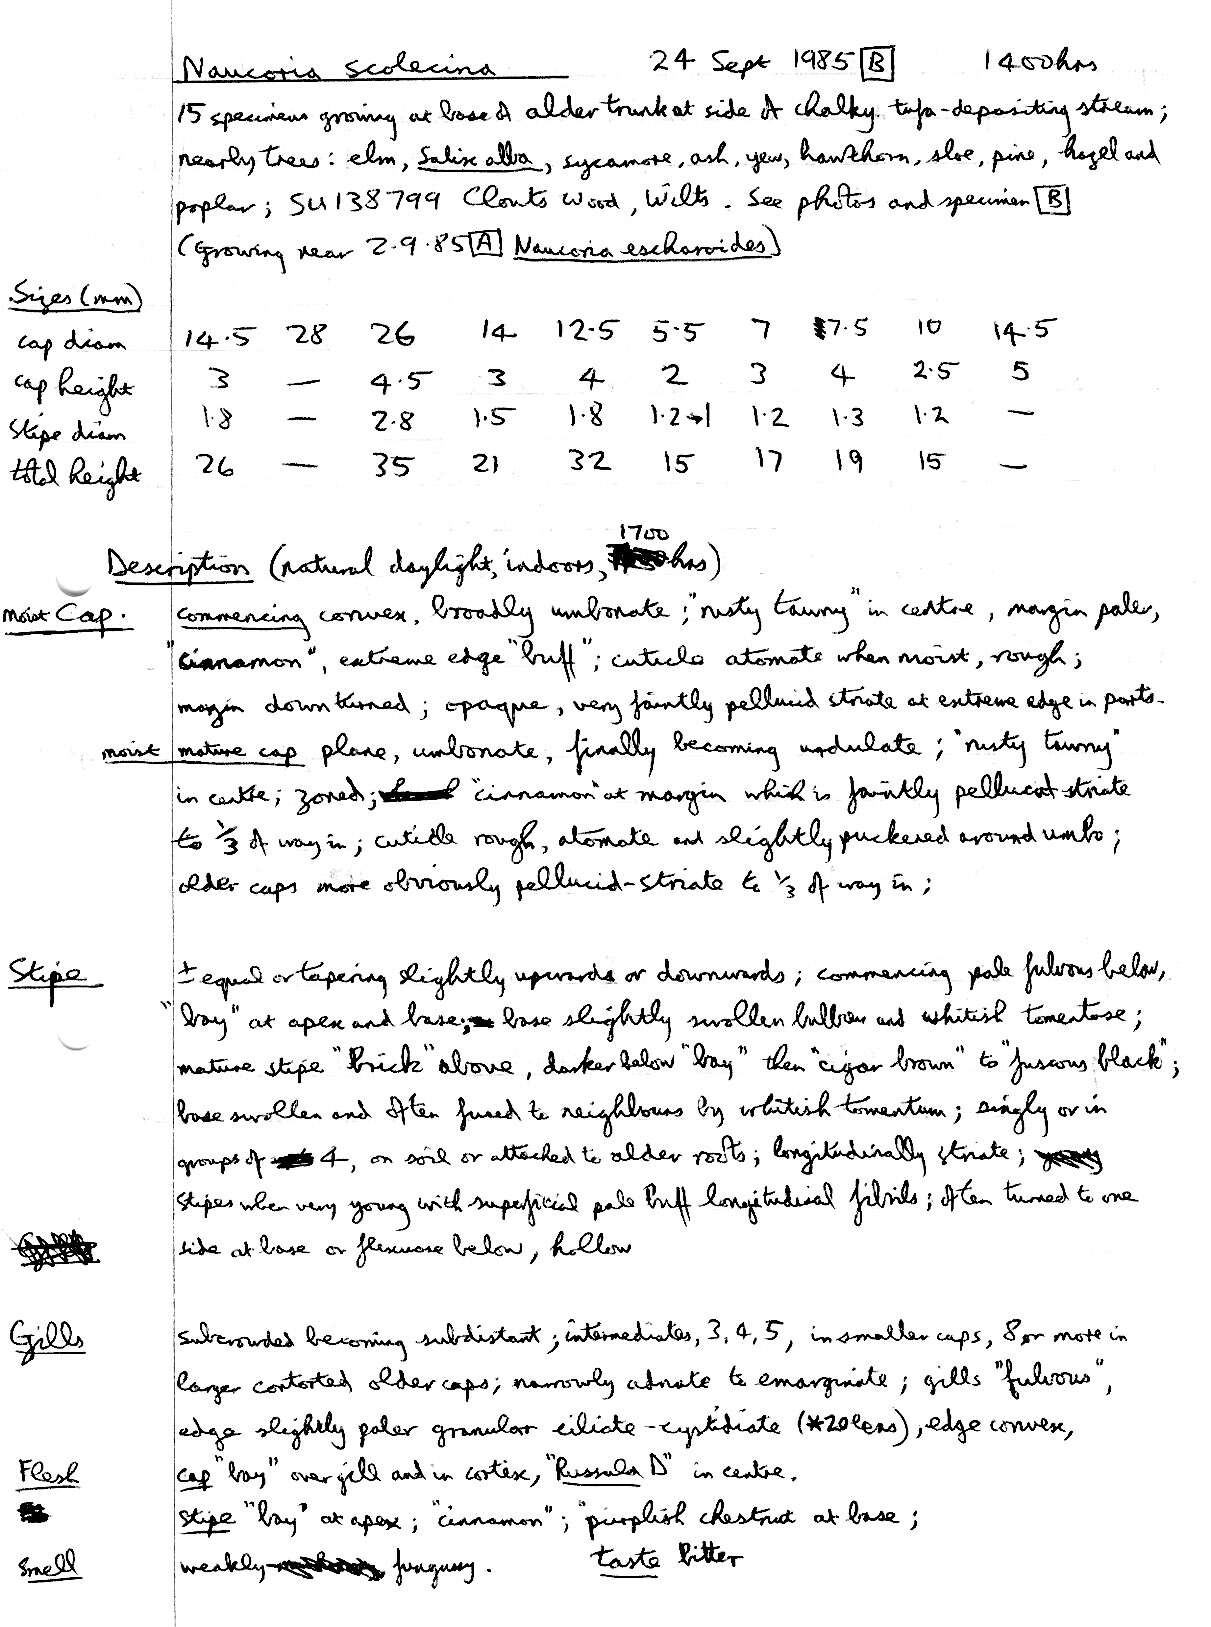 Naucoria scolecina 24 Sept 1985 B 1400hrs
15 specimens growing at base of alder trunk at side of chalky tufa-depositing stream;
nearby trees: elm, Salix alba, sycamore, ash, yew, hawthorn, sloe, pine, hazel and
poplar; SU138799 Clouts Wood, Wilts. See photos and specimen B
(Growing near 2.9.85 A Naucoria escharoides)
Sizes (mm)
cap diam 14.5 28 26 14 12.5 5.5 7 7.5 10 14.5
cap height 3 — 4.5 3 4 2 3 4 2.5 5
Stipe diam 1.8 — 2.8 1.5 1.8 1.2→1 1.2 1.3 1.2 —
total height 26 — 35 21 32 15 17 19 15 —
Description (natural daylight, indoors, 1700 hrs)
moist Cap. commencing convex, broadly umbonate; "rusty tawny" in centre, margin paler,
"cinnamon", extreme edge "buff"; cuticle atomate when moist, rough;
margin downturned; opaque, very faintly pellucid striate at extreme edge in parts.
moist mature cap plane, umbonate, finally becoming undulate; "rusty tawny"
in centre; zoned; "cinnamon" at margin which is faintly pellucid-striate
to 1/3 of way in; cuticle rough, atomate and slightly puckered around umbo;
older caps more obviously pellucid-striate to 1/3 of way in;
Stipe ± equal or tapering slightly upwards or downwards; commencing pale fulvous below,
"bay" at apex and base; base slightly swollen bulbous and whitish tomentose;
mature stipe "brick" above, darker below "bay" then "cigar brown" to "fuscous black";
base swollen and often fused to neighbours by whitish tomentum; singly or in
groups of 4, on soil or attached to alder roots; longitudinally striate;
stipes when very young with superficial pale buff longitudinal fibrils; often turned to one
side at base or flexuose below, hollow
Gills subcrowded becoming subdistant; intermediates, 3, 4, 5, in smaller caps, 8 or more in
larger contorted older caps; narrowly adnate to emarginate; gills "fulvous",
edge slightly paler granular ciliate-cystidiate (*20 lens), edge convex,
Flesh cap "bay" over gill and in cortex, "Russula D" in centre.
stipe "bay" at apex; "cinnamon"; "purplish chestnut at base;
Smell weakly fungusy. taste bitter